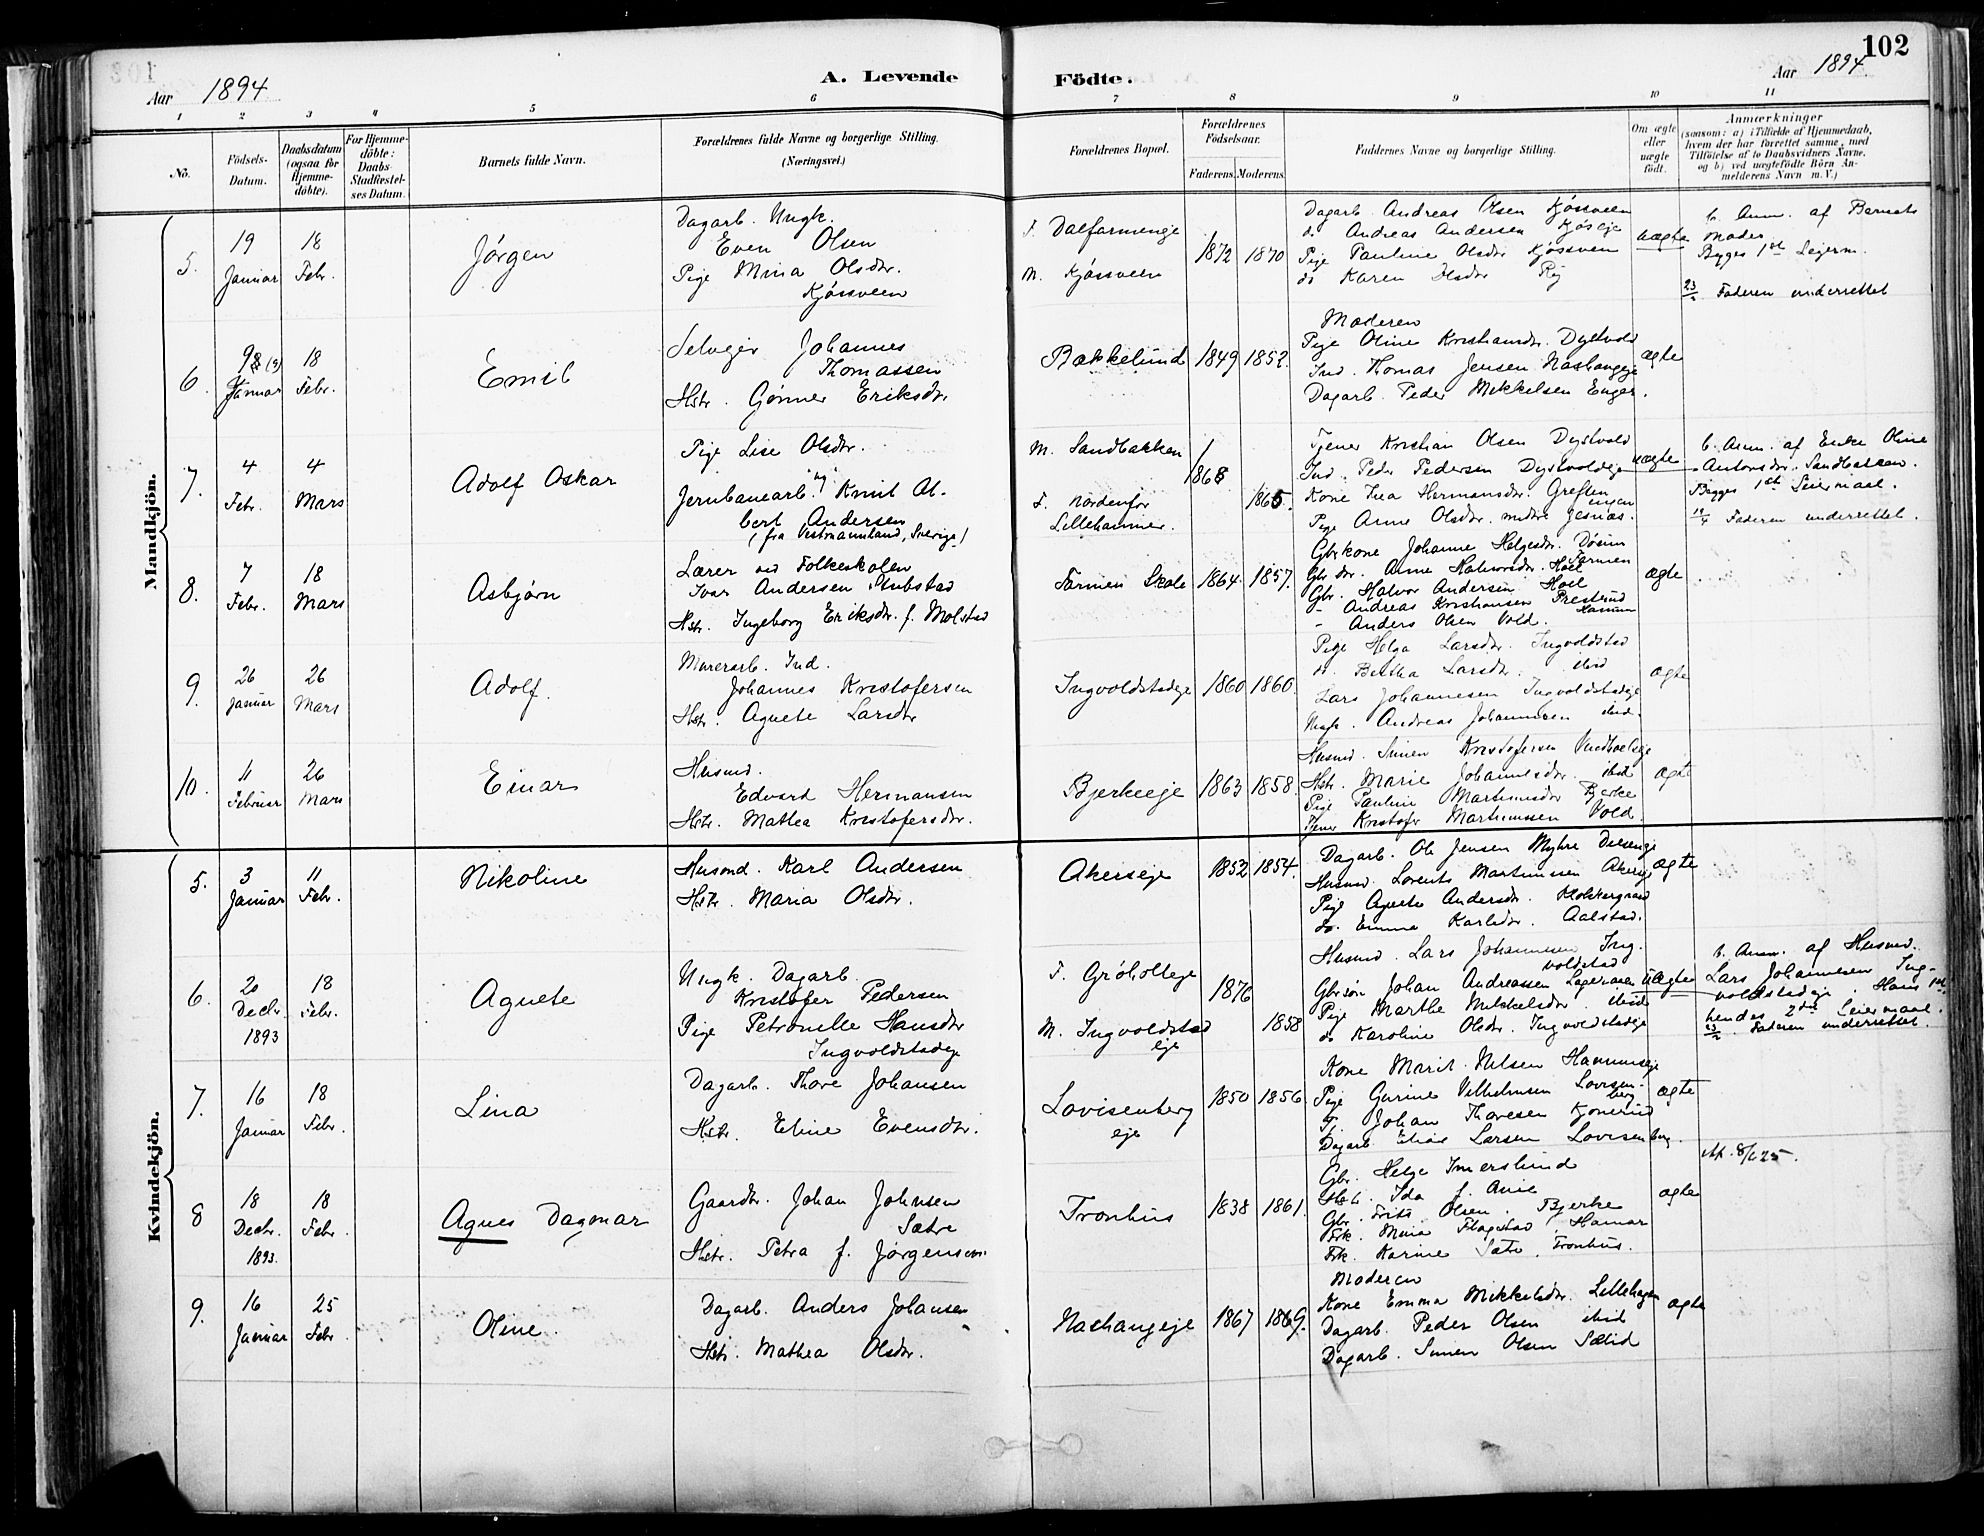 102
Aar 1894
A. Levende
Födte.
Aar 1894
1 2 3 4 5 6 7 8 9 10 11
No.
Födsels-
Datum.
Daabsdatum
(ogsaa for
Hjemme-
döbte).
For Hjemme-
döbte:
Daabs-
Stadfæstel-
ses Datum.
Barnets fulde Navn.
Forældrenes fulde Navne og borgerlige Stilling.
(Næringsvei.)
Forældrenes Bopæl.
Forældrenes
Födselsaar.
Faderens. Moderens.
Faddernes Navne og borgerlige Stilling.
Om ægte
eller
uægte
födt.
Anmærkninger
(saasom: a) i Tilfælde af Hjemmedaab,
hvem der har forrettet samme, med
Tilföielse af to Daabsvidners Navne,
og b) ved uægtefödte Börn An-
melderens Navn m. V.)
Mandkjön.
5.
19
Januar
18
Febr.
Jörgen
Dagarb. Ungk.
Even Olsen
Pige Mina Olsdr.
Kjösveen
F. Dalfarmenge
M. Kjösveen
1872 1870
Dagarb. Andreas Olsen Kjösveen
do Andreas Andersen Kjöseje
Pige Pauline Olsdr Kjösveen
do Karen Olsdr
uægte
b. Anm. af Barnets
Moder
Begges 1ste Leierm.
Faderen underrettet
6.
Januar
18
Febr.
Emil
Selveger Johannes
Thomassen
Hstr. Gönner Eriksdr
Bækkelund
1849 1852.
Moderen
Pige Oline Kristiansdr. Dystvold
Ind. Thomas Jensen Nashaugeje
Dagarb. Peder Mikkelsen Enger.
ægte
7.
4
Febr.
4
Mars
Adolf Oskar
Pige Lise Olsdr.
Jernbanearb. Ug Knut Al-
bert Andersen
(fra Vestmannland, Sverige)
M. Sandbakken
F. Nordenfor
Lillehammer.
1868
1865.
Tjener Kristian Olsen Dystvold
Ind. Peder Pedersen Dystvoldeje
Kone Ina Hermansdr. Greften
Pige Anne Olsdr. nedre Jesnæs.
uægte
b. Anm. af Enke Oline
Antonsdr. Sandbakken.
Begges 1ste Leiermaal.
19/4 Faderen underrettet.
8.
7
Febr.
18
Mars
Asbjörn
Lærer ved Folkeskolen
Ivar Andersen Stubstad
Hstr. Ingeborg Eriksdr. f. Molstad
Farmen Skole
1864. 1857.
Gbrkone Johanne Helgesdr. Dösen
Farmen
Gbr.dr. Anne Halvorsdr. Hoel
Gbr. Halvor Andersen Hoel
- Andreas Kristiansen Prestrud
- Anders Olsen Vold.
ægte
9.
26
Januar
26
Mars
Adolf.
Murerarb. Ind.
Johannes Kristofersen
Hstr. Agnete Larsdr
Ingvoldstadeje
1860 1860.
Pige Helga Larsdr. Ingvoldstad
do. Berthea Larsdr. ibid
Lars Johannesen Ingvoldstadeje
Ungk. Andreas Johannesen ibid.
ægte
10.
11
Februar
26
Mars
Einar
Husmd.
Edvard Hermansen
Hstr. Mathea Kristofersdr.
Bjerkeeje
1863 1858.
Husmd. Simen Kristofersen
Hstr. Marie Johannesdr. ibid
Pige Pauline Martinusdr Bjerke
Tjener Kristofer Martinussen Vold.
ægte
Kvindekjön.
5.
3
Januar
11
Febr.
Nikoline
Husmd. Karl Andersen
Hstr. Maria Olsdr.
Akerseje
1852 1854.
Dagarb. Ole Jensen Myhre
Husmd. Lorents Martinussen Akerseje
Pige Agnete Andersdr. Klokkergaard
do. Emma Karlsdr. Aalstad.
ægte
6.
20
Decbr.
1893
18
Febr.
Agnete
Ungk. Dagarb.
Kristofer Pedersen
Pige Petronelle Hansdr
Ingvoldstadeje
F. Gröholteje
M. Ingvoldstad
eje
1876
1858
Husmd. Lars Johannesen Ing-
voldstad
Gbrsön Johan Andreassen
Pige Marthe Mikkelsdr. ibid
do Karoline Olsdr. Ingvoldstadeje
uægte
b. Anm. af Husmd.
Lars Johannesen Ing-
voldstadeje. Hans 1ste
hendes 2det Leiermaal.
23/2 Faderen underrettet.
7.
16
Januar
18
Febr.
Lina
Dagarb. Thore Johansen
Hstr. Eline Evensdr.
Lovisenberg
eje
1850 1856
Kone Marit Nilsen
Pige Gurine Vilhelmsen Lovisen-
berg
Tj. Johan Thoresen Kjonerud
Dagarb. Elias Larsen Lovisenberg.
ægte
8
18
Decbr.
1893.
18
Febr.
Agnes Dagmar
Gaardbr. Johan Johnsen
Sætre
Hstr. Petra f. Jörgensen
Tronhus
1838 1861.
Gbr. Helge Imerslund
Hstr. Ida f. Arne
Gbr. Frits Olsen. Bjerke
Frk. Mina Flagstad Hamar
Frk. Karine Sætre. Tronhus.
ægte
Att. 8/1 25.
9.
16
Januar
25
Febr.
Oline
Dagarb. Anders Johansen
Hstr. Mathea Olsdr.
Nashaugeje
1867 1869.
Moderen
Kone Emma Mikkelsdr. Lillehagen
Dagarb. Peder Olsen ibid
Dagarb. Simen Olsen Sælid
ægte